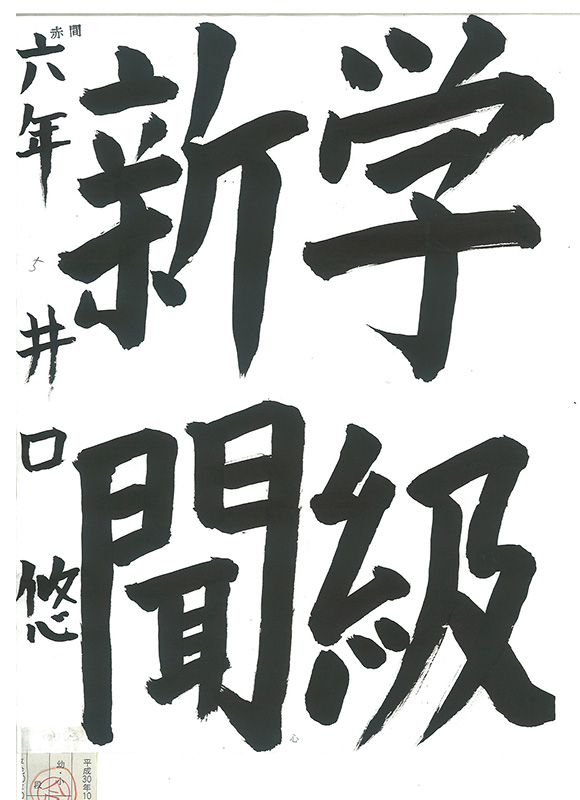 学級
新聞
赤間
六年 井口 悠
平成30年10
幼・小
段
心